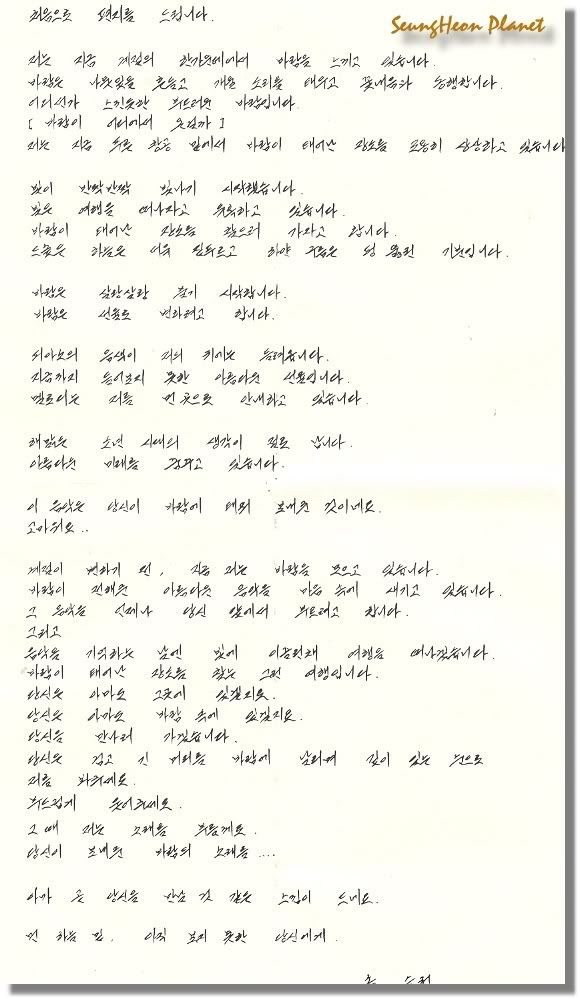 SeungHeon Planet
처음으로 편지를 드립니다.
저는 지금 계절의 한가운데에서 바람을 느끼고 있습니다.
바람은 나뭇잎을 흔들고 개울 소리를 태우고 꽃내음과 동행합니다.
어디선가 느낀듯한 부드러운 바람입니다.
[ 바람이 어디에서 옷일까 ]
저는 지금 푸른 창공 밑에서 바람이 태어난 장소를 조용히 상상하고 있습니다
빛이 반짝반짝 빛나기 시작했습니다.
빛은 여행을 떠나자고 유혹하고 있습니다.
바람이 태어난 장소를 찾으러 가자고 합니다.
드높은 하늘은 더욱 짙푸르고 하얀 구름은 덩 뚫린 기분입니다.
바람은 살랑살랑 불기 시작합니다.
바람은 선율로 변하려고 합니다.
피아노의 음색이 저의 귀에도 들려옵니다.
지금까지 들어보지 못한 아름다운 선율입니다.
멜로디는 저를 먼 곳으로 안내하고 있습니다.
해맑은 소년 시대의 생각이 절로 납니다.
아름다운 미래를 꿈꾸고 있습니다.
이 음악은 당신이 바람에 태워 보내온 것이네요.
고마워요..
계절이 변하기 전, 지금 저는 바람을 모으고 있습니다.
바람이 전해온 아름다운 음악을 마음 속에 새기고 있습니다.
그 음악을 언제나 당신 앞에서 부르려고 합니다.
그리고
음악을 기억하는 날엔 빛에 이끌린채 여행을 떠나겠습니다.
바람이 태어난 장소를 찾는 그런 여행입니다.
당신은 아마도 그곳에 있겠지요.
당신은 아마도 바람 속에 있겠지요.
당신을 만나러 가겠습니다.
당신은 검고 긴 머리를 바람에 날리며 깊이 있는 눈으로
저를 봐주세요.
부드럽게 웃어주세요.
그 때 저는 노래를 부를께요.
당신이 보내온 바람의 노래를 ....
아마 곧 당신을 만날 것 같은 느낌이 드네요.
먼 하늘 밑, 아직 보지 못한 당신에게.
드림